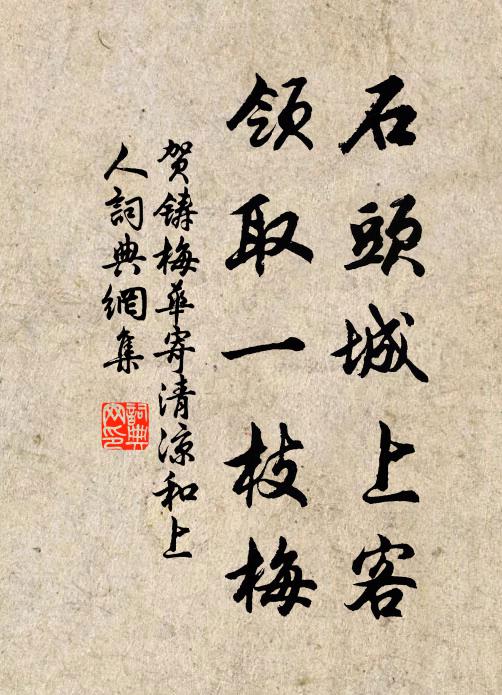 石頭城上客
領取一枝梅
贺鑄梅華寄清涼和上
人詞典網集
詞典
网印